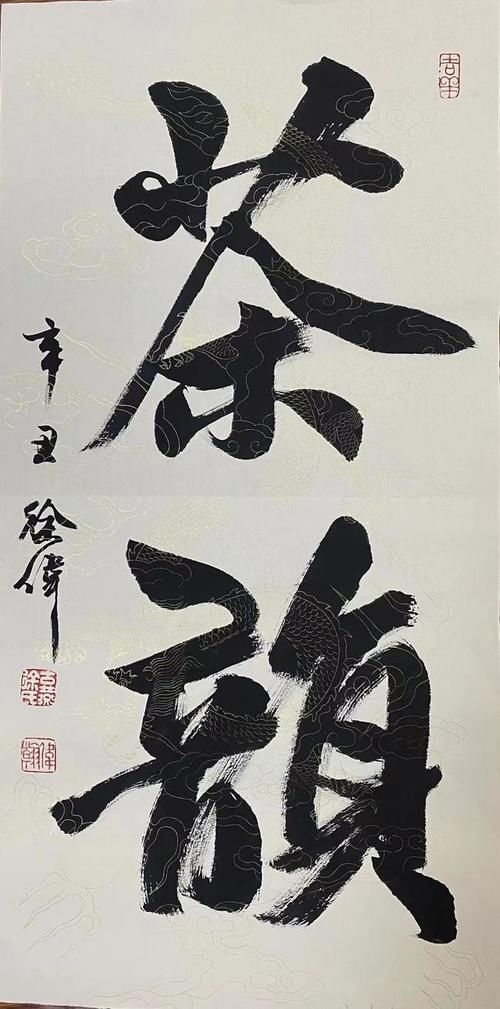 茶韻
辛丑 徐偉